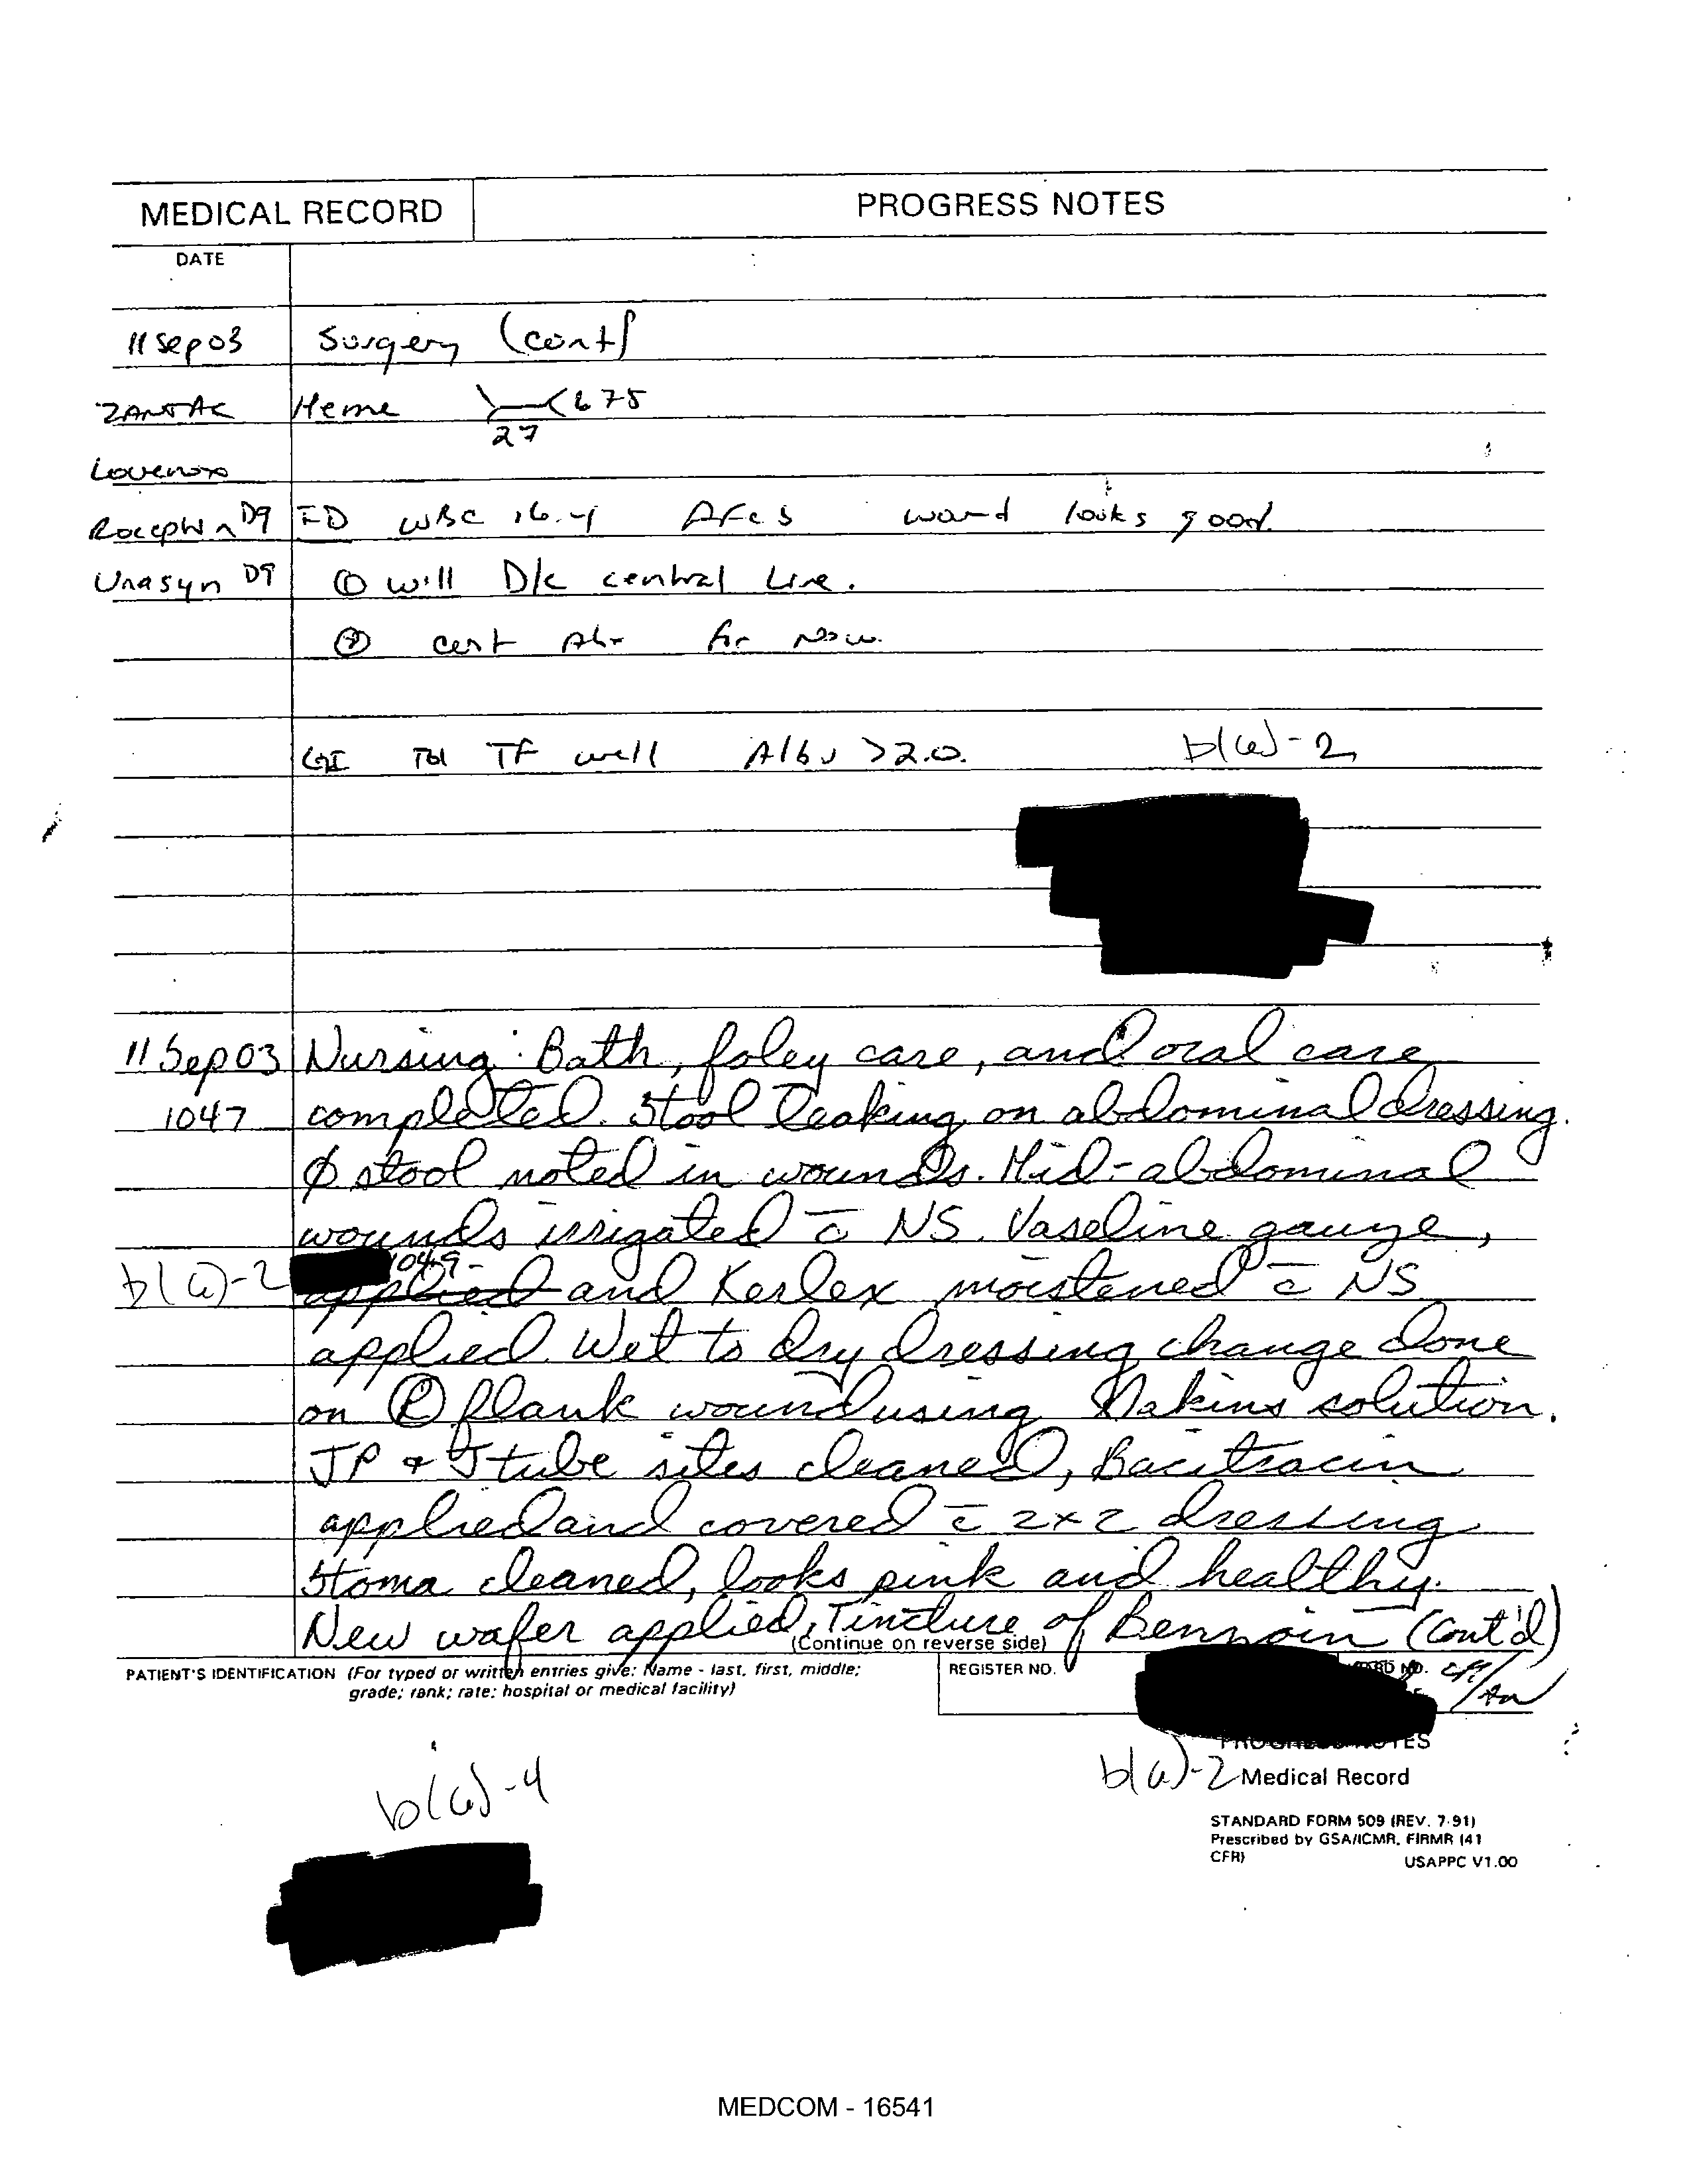 MEDICAL RECORD
PROGRESS NOTES
DATE
11 Sep 03 Surgery (cont)
ZANTAC Heme 675
27
Lovenox
Rocephin D9 ID WBC 16.4 looks good.
Unasyn D9 ① will D/c central Line.
② for Now.
GI Tol TF well Albu >2.0. b(6)-2
11 Sep 03 Nursing: Bath, foley care, and oral care
1047 completed. Stool leaking on abdominal dressing.
∅ stool noted in wounds. Mid-abdominal
wounds irrigated c̄ NS. Vaseline gauze,
1049-
b(6)-2 applied and Kerlex moistened c̄ NS
applied. Wet to dry dressing change done
on Ⓡ flank wound using Dakins solution.
JP & J tube sites cleaned, Bacitracin
applied and covered c̄ 2x2 dressing
Stoma cleaned, looks pink and healthy.
New wafer applied, Tincture of Bennoin (Cont'd)
(Continue on reverse side)
PATIENT'S IDENTIFICATION (For typed or written entries give: Name - last, first, middle;
grade; rank; rate; hospital or medical facility)
REGISTER NO.
PROGRESS NOTES
b(6)-4
b(6)-2 Medical Record
STANDARD FORM 509 (REV. 7-91)
Prescribed by GSA/ICMR, FIRMR (41
CFR)
USAPPC V1.00
MEDCOM - 16541